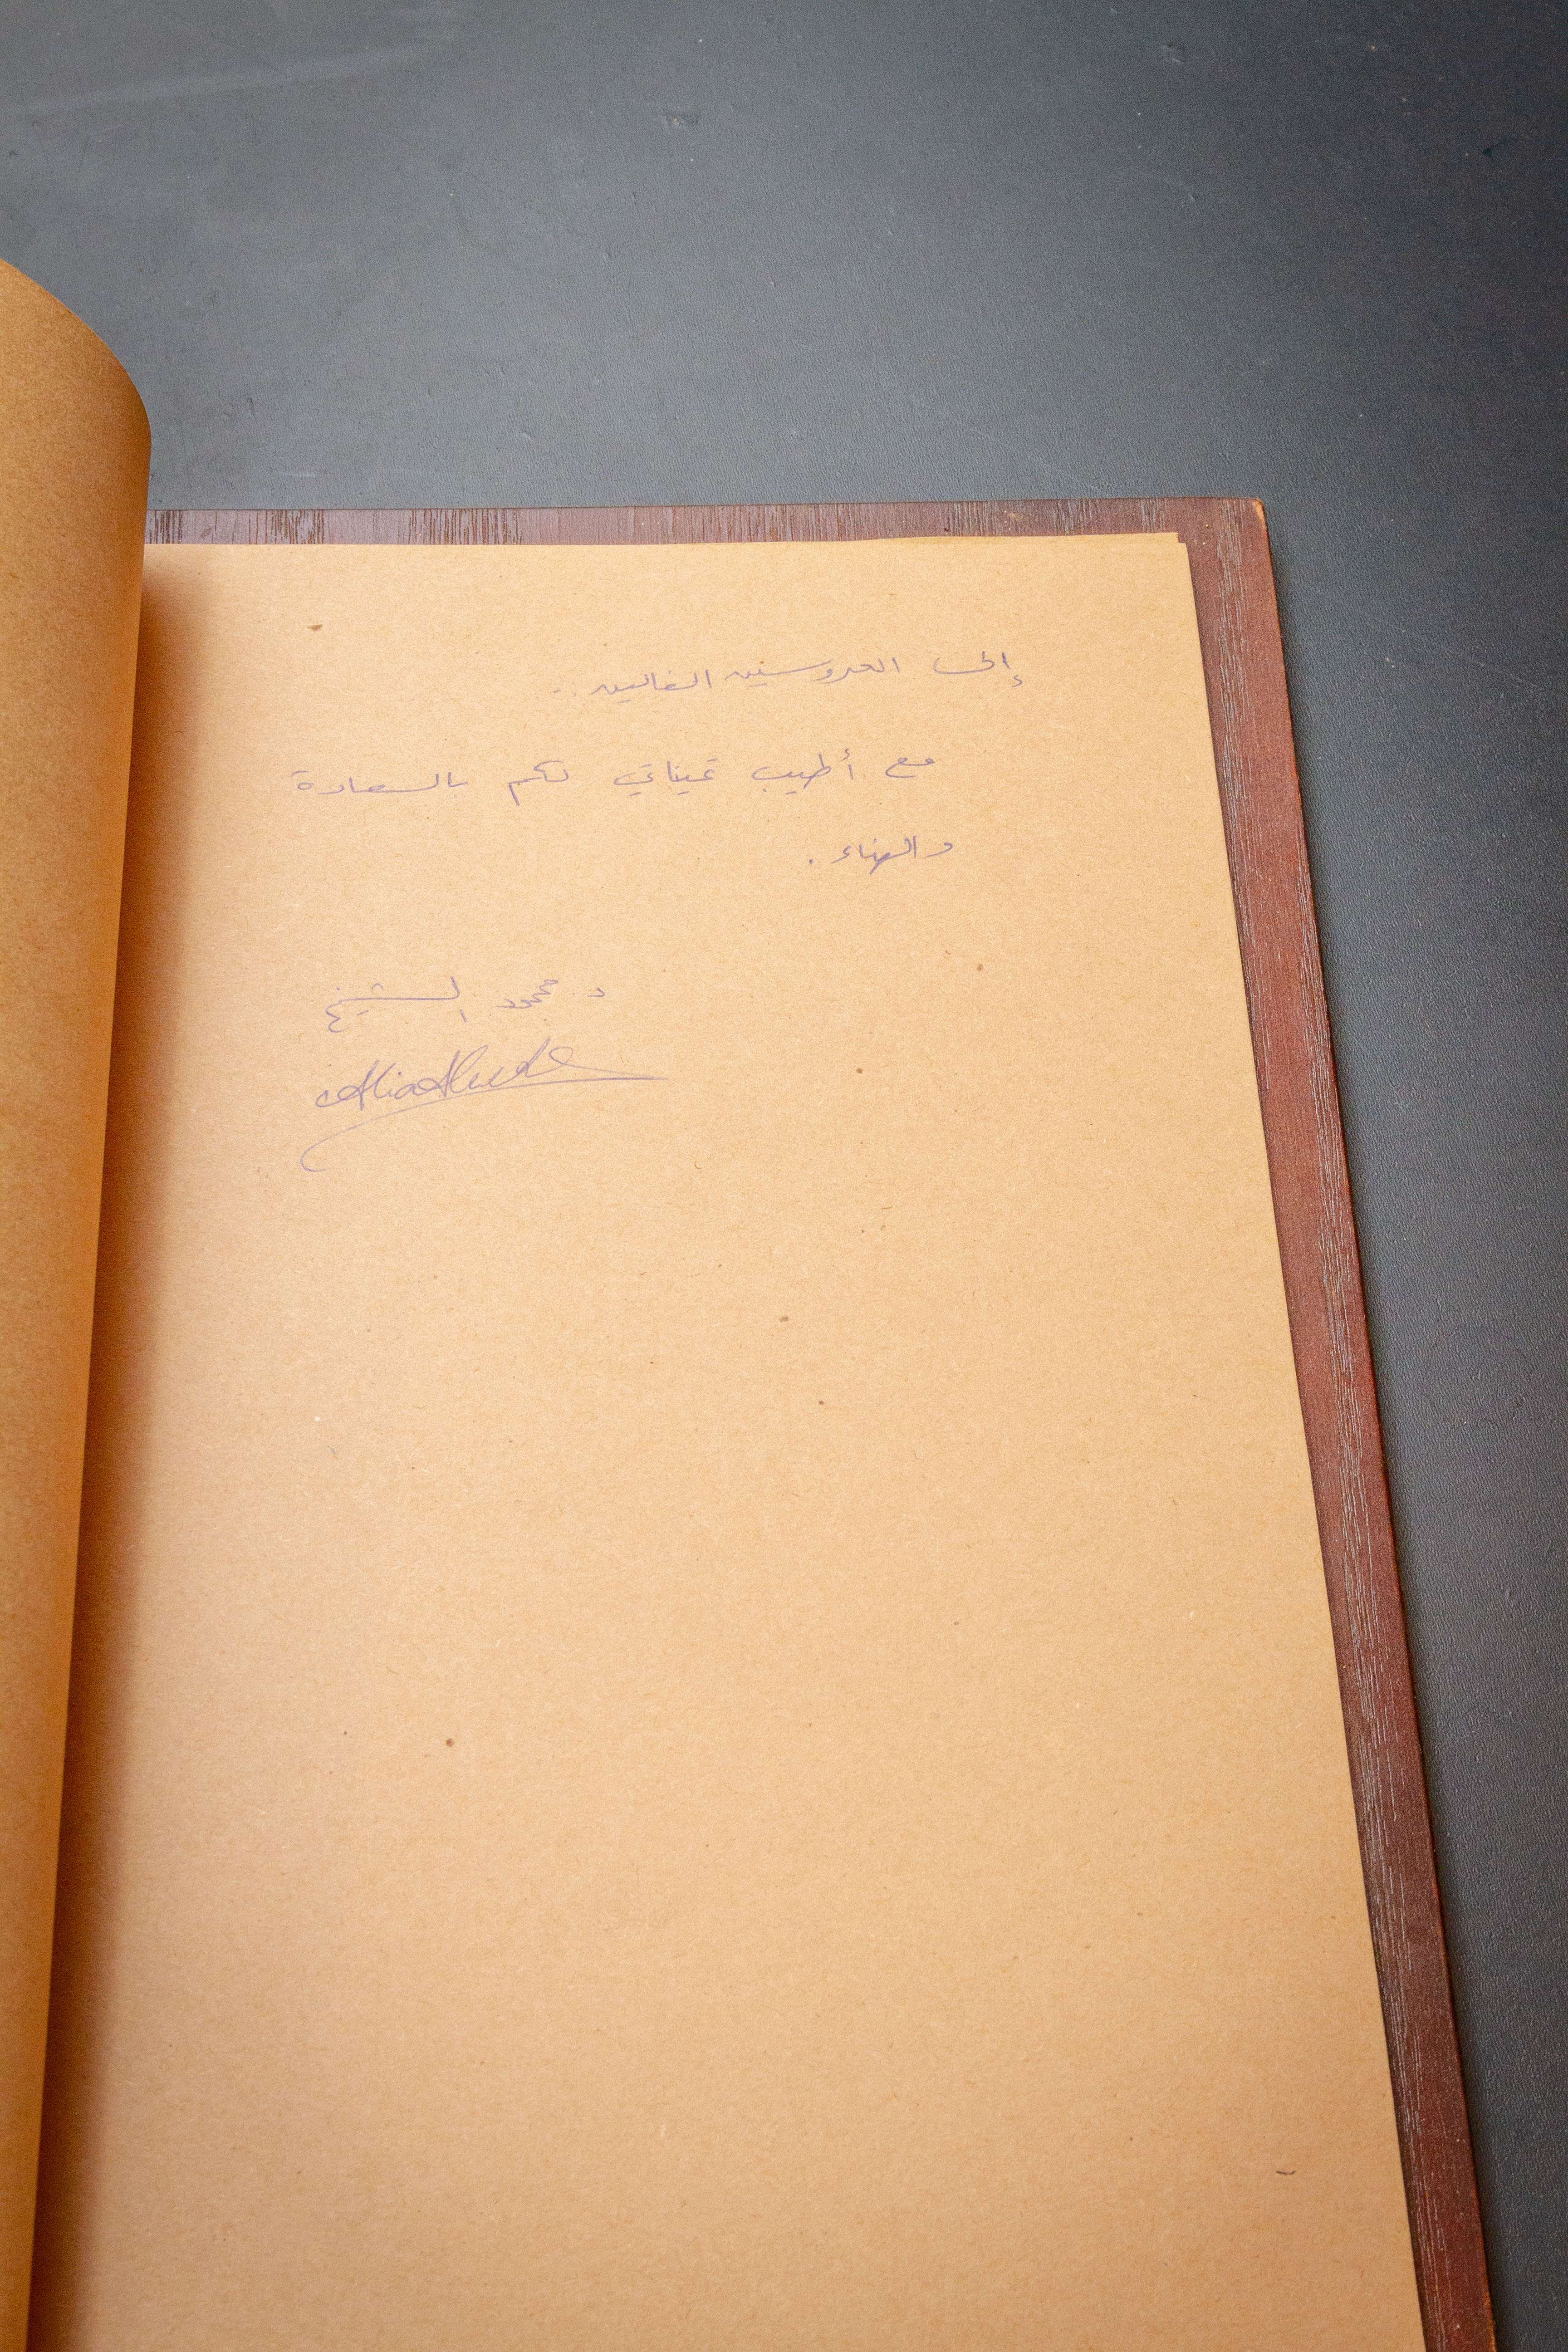 إلى العروسين الغاليين ..
مع أطيب تمنياتي لكم بالسعادة
والهناء .
د. محمود الشيخ